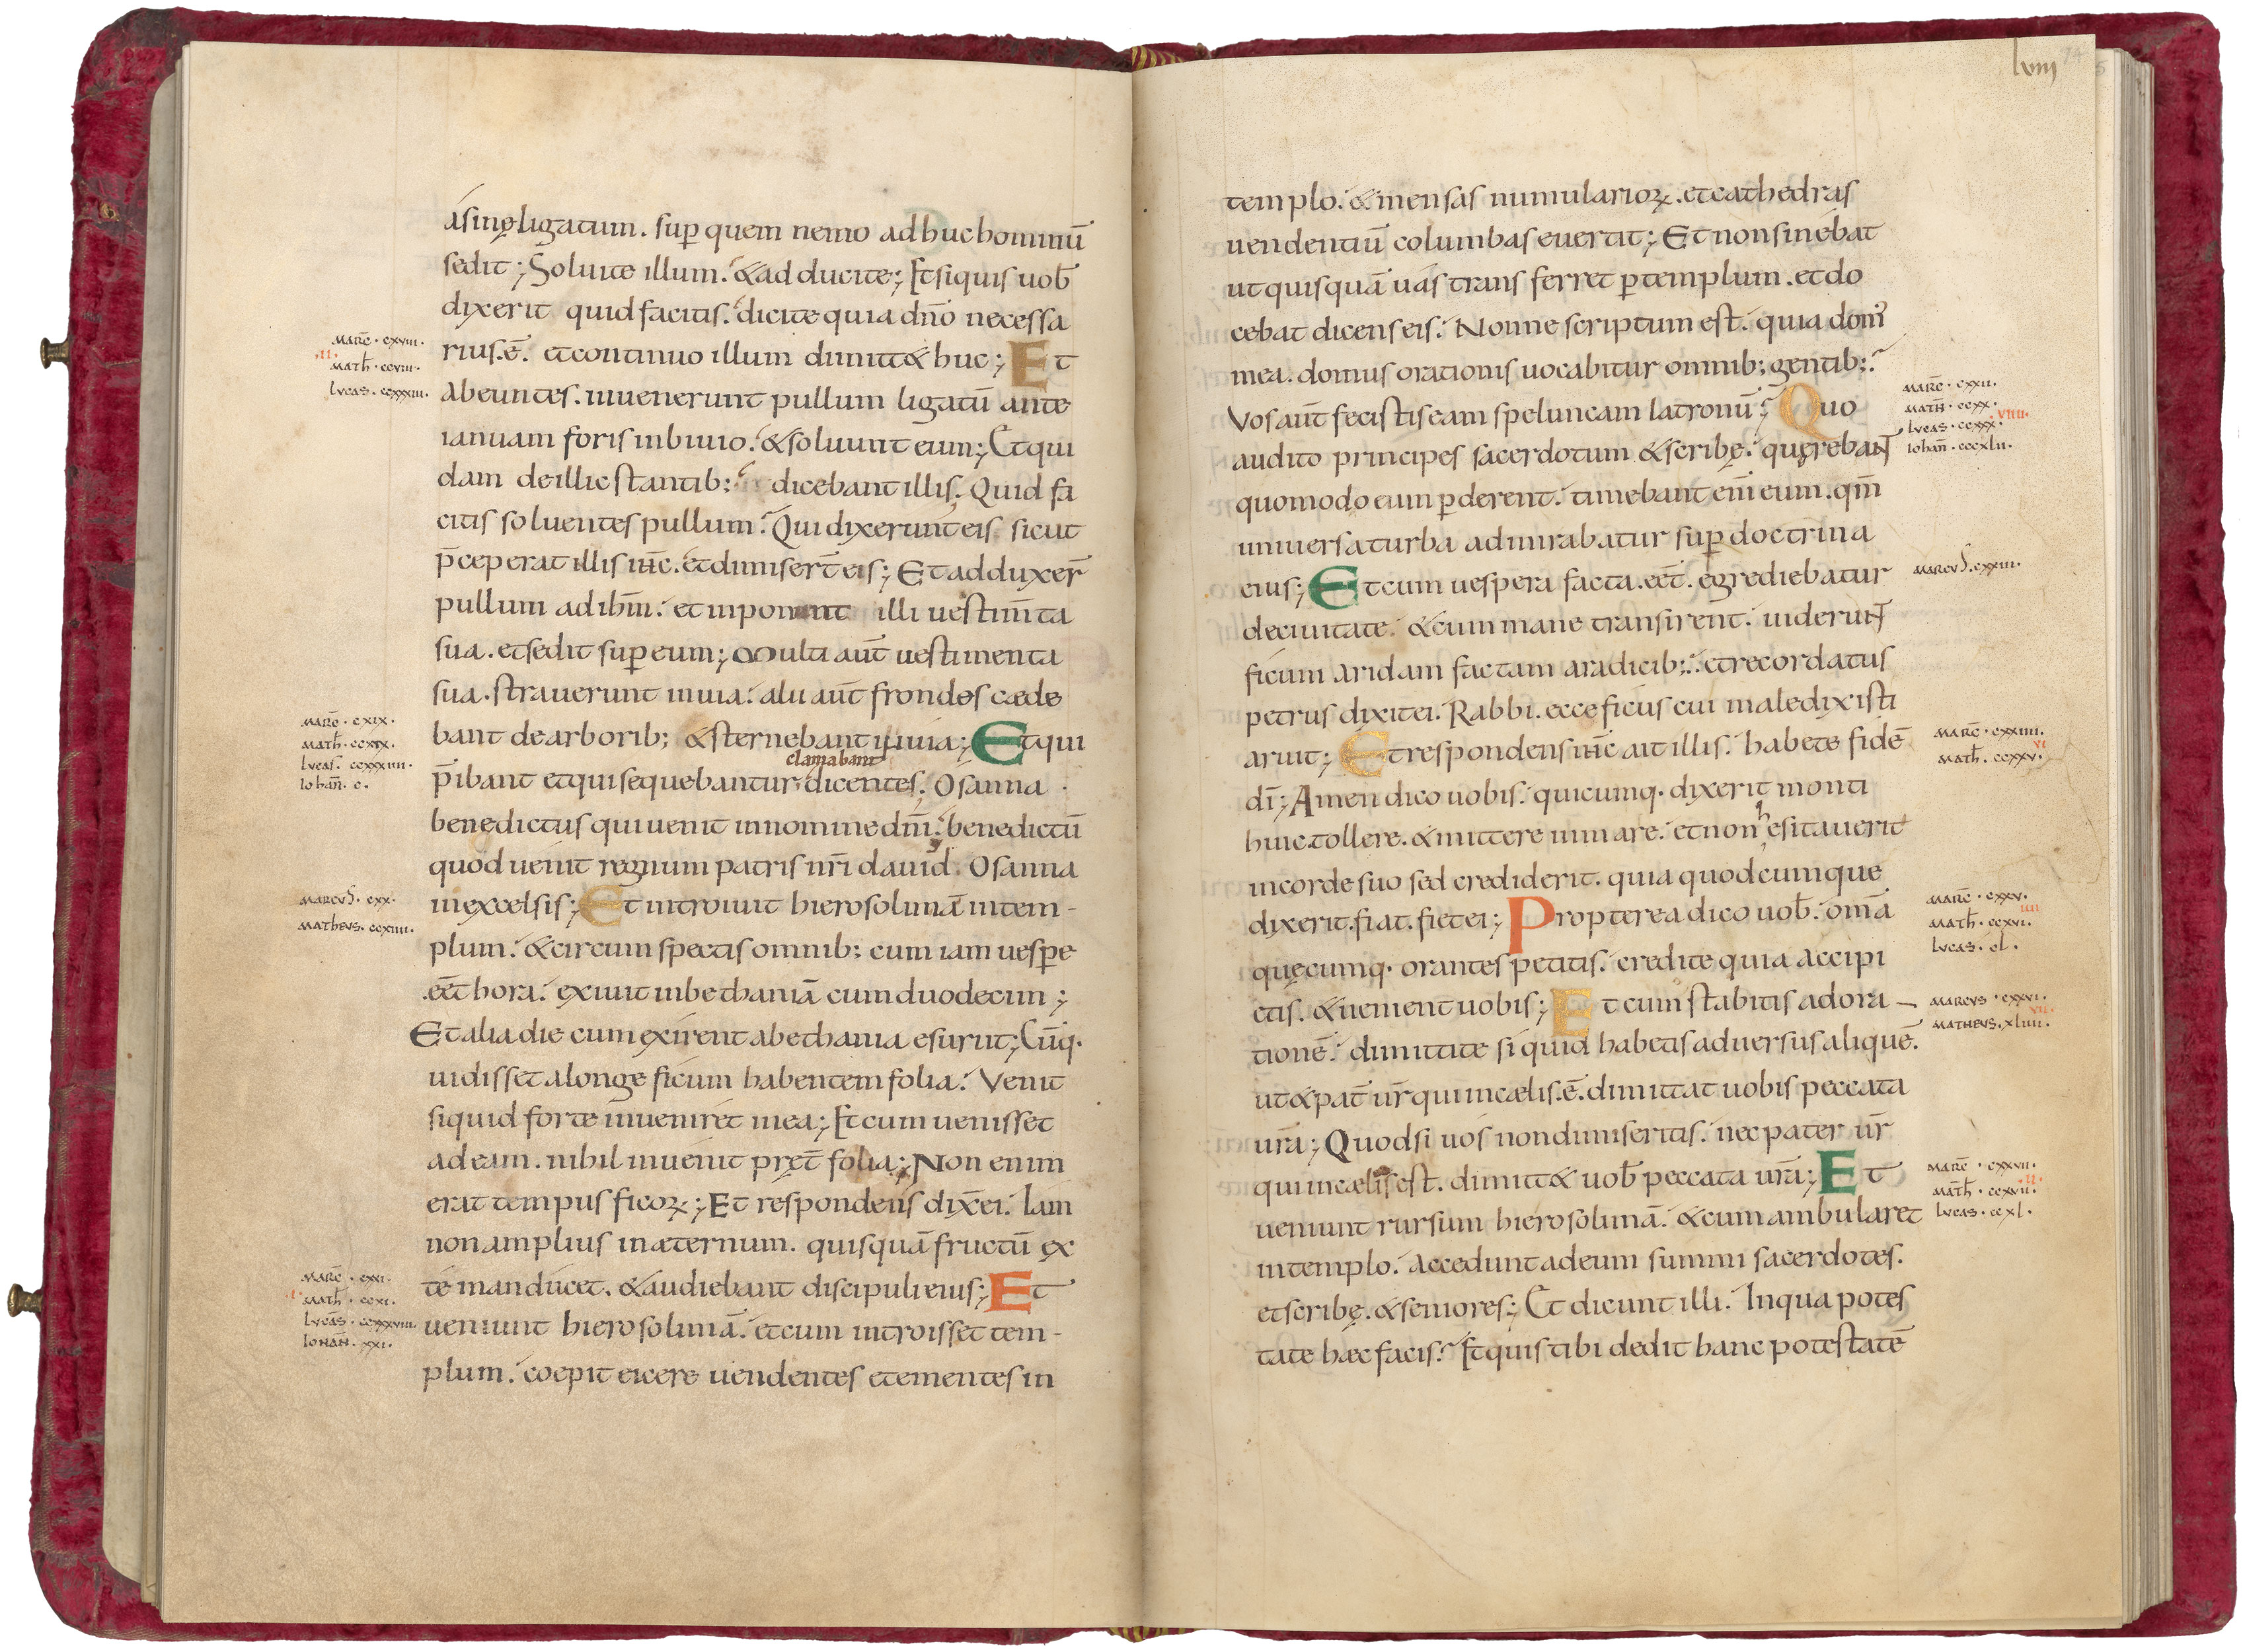 asinę ligatum. sup̄ quem nemo adhuc hominū
sedit; Soluite illum. & adducite; Et siquis uob̄
dixerit quid facitis. dicite quia dn̄o necessa
rius.ē. et continuo illum dimitt& huc; Et
abeuntes. inuenerunt pullum ligatū ante
ianuam foris inbiuio. & soluunt eum; Et qui
dam de illic stantib; dicebant illis. Quid fa
citis soluentes pullum. Qui dixerunt eis sicut
p̄ceperat illis ih̄c. et dimiser̄t eis; Et adduxer̄
pullum ad ih̄m. et inponunt illi uestim̄ta
sua. et sedit sup̄ eum; Multi aūt uestimenta
sua. strauerunt inuia. alii aūt frondes cæde
bant de arborib; & sternebant inuia; Et qui
clamabant
p̄ibant et qui sequebantur dicentes. Osanna
benedictus qui uenit in nomine dn̄i. benedictū
quod uenit regnum patris nr̄i dauid. Osanna
inexcelsis; Et introiuit hierosolimā in tem-
plum. & circumspectis omnib; cum iam uesp̄e
.eēt hora. exiuit in bethaniā cum duodecim;
Et alia die cum exirent abethania esuriit; Cūq.
uidisset alonge ficum habentem folia. Venit
siquid forte inueniret in ea; Et cum uenisset
ad eam. nihil inuenit pręt̄ folia; Non enim
erat tempus ficoꝝ; Et respondens dix̄ ei. Iam
non amplius in æternum. quisquā fructū ex
te manducet. & audiebant discipuli eius; Et
ueniunt hierosolimā. et cum introisset tem-
plum. coepit eicere uendentes et ementes in
MARC̄. CXVIII.
II.
MATH̄. CCVIII.
LVCAS. CCXXXIII.
MARC̄. CXIX.
MATH̄. CCXIX.
LVCAS. CCXXXIIII.
IOHAN̄. C.
MARCVS. CXX.
MATHEVS. CCXIIII.
MARC̄. CXXI.
I.
MATH̄. CCXI.
LVCAS. CCXXXVIII.
IOHAN̄. XXI.
lviii
templo. & mensas numularioꝝ. et cathedras
uendentiū columbas euertit; Et non sinebat
ut quisquā uas transferret p̄ templum. et do
cebat dicens eis. Nonne scriptum est. quia dom'
mea. domus orationis uocabitur omnib; gentib;
Vos aūt fecistis eam speluncam latronū; Quo
audito principes sacerdotum & scribę. quęrebant
quomodo eum p̄derent. timebant eī eum. qm̄
uniuersa turba admirabatur sup̄ doctrina
eius; Et cum uespera facta. eēt. egrediebatur
deciuitate. & cum mane transirent. uiderunt
ficum aridam factam aradicib; et recordatus
petrus dixit ei. Rabbi. ecce ficus cui maledixisti
aruit; Et respondens ih̄c ait illis. habete fidē
dī; Amen dico uobis. quicumq. dixerit monti
huic tollere. & mittere in mare. et non hesitauerit
in corde suo sed crediderit. quia quodcumque
dixerit. fiat. fiet ei; Propterea dico uob̄. om̄a
quęcumq. orantes petitis. credite quia accipi
etis. & uenient uobis; Et cum stabitis ad ora-
tionē. dimittite siquid habetis aduersus aliquē.
ut & pat̄ ur̄ qui in cælis.ē. dimittat uobis peccata
ur̄a; Quodsi uos non dimiseritis. nec pater ur̄
qui in cælis est. dimitt& uob̄ peccata ur̄a; Et
ueniunt rursum hierosolimā. & cum ambularet
in templo. accedunt ad eum summi sacerdotes.
et scribę. & seniores; Et dicunt illi. In qua potes
tate hæc facis. Et quis tibi dedit hanc potestatē
MARC̄. CXXII.
MATH̄. CCXX.
VIIII.
LVCAS. CCXXX.
IOHAN̄. CCCXLII.
MARCVS. CXXIII.
MARC̄. CXXIIII.
VI
MATH̄. CCXXV.
MARC̄. CXXV.
IIII
MATH̄. CCXVI.
LVCAS. CL.
MARCVS. CXXVI.
VII.
MATHEVS. XLIIII.
MARC̄. CXXVII.
II.
MATH̄. CCXVII.
LVCAS. CCXL.